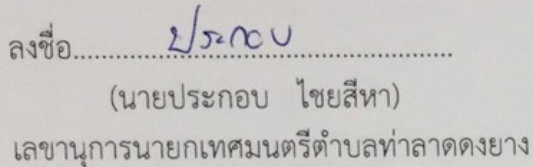 ลงชื่อ.......ประกอบ.......
(นายประกอบ ไชยสีหา)
เลขานุการนายกเทศมนตรีตำบลท่าลาดดงยาง